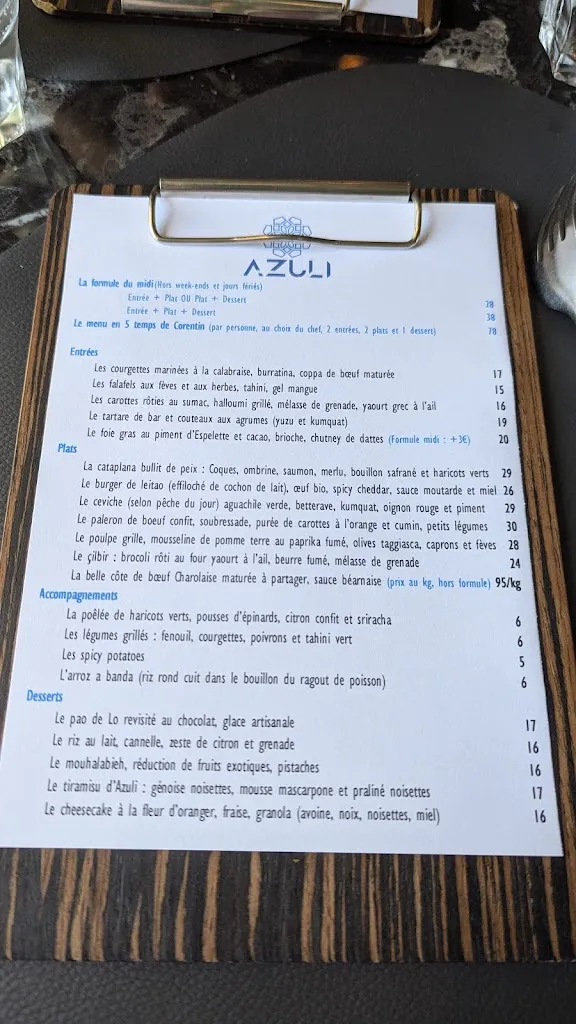 AZULI
La formule du midi (Hors week-ends et jours fériés)
Entrée + Plat OU Plat + Dessert 28
Entrée + Plat + Dessert 38
Le menu en 5 temps de Corentin (par personne, au choix du chef, 2 entrées, 2 plats et 1 dessert) 78
Entrées
Les courgettes marinées à la calabraise, burratina, coppa de bœuf maturée 17
Les falafels aux fèves et aux herbes, tahini, gel mangue 15
Les carottes rôties au sumac, halloumi grillé, mélasse de grenade, yaourt grec à l'ail 16
Le tartare de bar et couteaux aux agrumes (yuzu et kumquat) 19
Le foie gras au piment d'Espelette et cacao, brioche, chutney de dattes (Formule midi : +3€) 20
Plats
La cataplana bullit de peix : Coques, ombrine, saumon, merlu, bouillon safrané et haricots verts 29
Le burger de leitao (effiloché de cochon de lait), œuf bio, spicy cheddar, sauce moutarde et miel 26
Le ceviche (selon pêche du jour) aguachile verde, betterave, kumquat, oignon rouge et piment 29
Le paleron de boeuf confit, soubressade, purée de carottes à l'orange et cumin, petits légumes 30
Le poulpe grille, mousseline de pomme terre au paprika fumé, olives taggiasca, caprons et fèves 28
Le çilbir : brocoli rôti au four yaourt à l'ail, beurre fumé, mélasse de grenade 24
La belle côte de bœuf Charolaise maturée à partager, sauce béarnaise (prix au kg, hors formule) 95/kg
Accompagnements
La poêlée de haricots verts, pousses d'épinards, citron confit et sriracha 6
Les légumes grillés : fenouil, courgettes, poivrons et tahini vert 6
Les spicy potatoes 5
L'arroz a banda (riz rond cuit dans le bouillon du ragout de poisson) 6
Desserts
Le pao de Lo revisité au chocolat, glace artisanale 17
Le riz au lait, cannelle, zeste de citron et grenade 16
Le mouhalabieh, réduction de fruits exotiques, pistaches 16
Le tiramisu d'Azuli : génoise noisettes, mousse mascarpone et praliné noisettes 17
Le cheesecake à la fleur d'oranger, fraise, granola (avoine, noix, noisettes, miel) 16